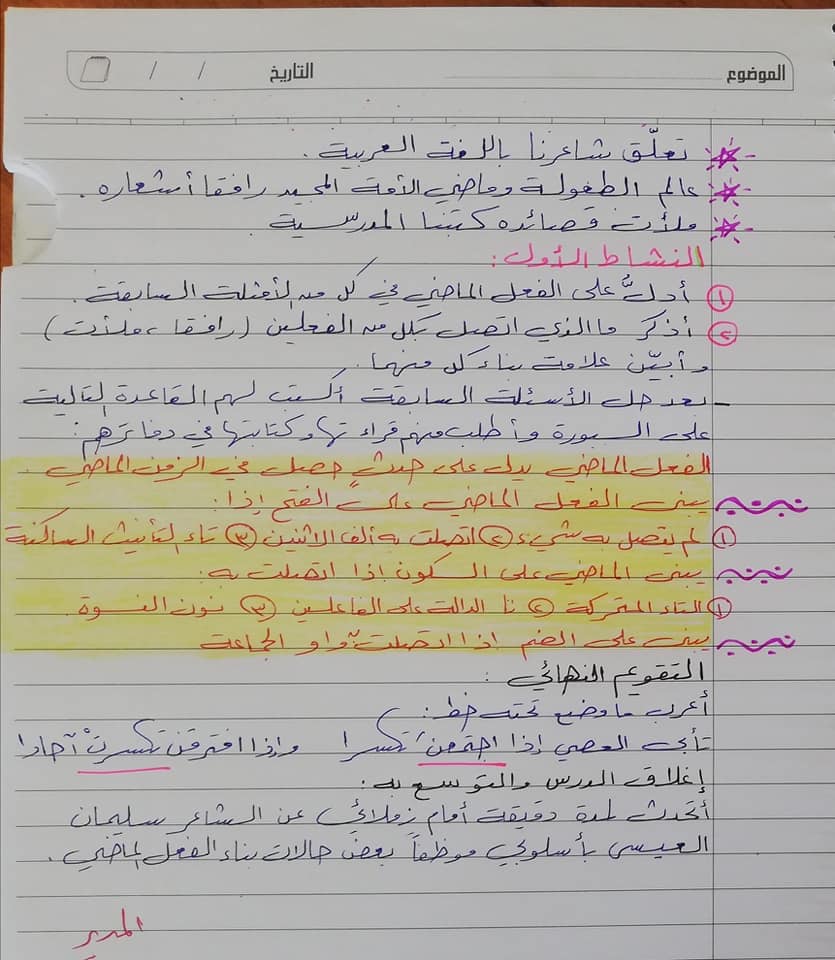 الموضوع التاريخ / /
تعلّق شاعرنا باللغة العربية .
عالم الطفولة وماضي الأمة المجيد رافقا أشعاره .
ملأت قصائده كتبنا المدرسية
النشاط الأول :
① أدلُّ على الفعل الماضي في كل من الأمثلة السابقة .
② أذكر ما الذي اتصل بكل من الفعلين ( رافقا ، ملأت )
وأبيّن علامة بناء كل منهما .
- بعد حل الأسئلة السابقة أكتب لهم القاعدة التالية
على السبورة وأطلب منهم قراءتها وكتابتها في دفاترهم :
الفعل الماضي يدل على حدثٍ حصل في الزمن الماضي
يبنى الفعل الماضي على الفتح إذا :
① لم يتصل به شيء ② اتصلت به ألف الاثنين ③ تاء التأنيث الساكنة
يبنى الماضي على السكون إذا اتصلت به :
① التاء المتحركة ② نا الدالة على الفاعلين ③ نون النسوة
يبنى على الضم إذا اتصلت به واو الجماعة
التقويم النهائي :
أعرب ما وضع تحته خط :
تأبى العصي إذا اجتمعنَ تكسرا وإذا افترقن تكسرتْ آحادا
إغلاق الدرس والتوسع به :
أتحدث لمدة دقيقة أمام زملائي عن الشاعر سليمان
العيسى بأسلوبي موظفاً بعض حالات بناء الفعل الماضي .
المدير